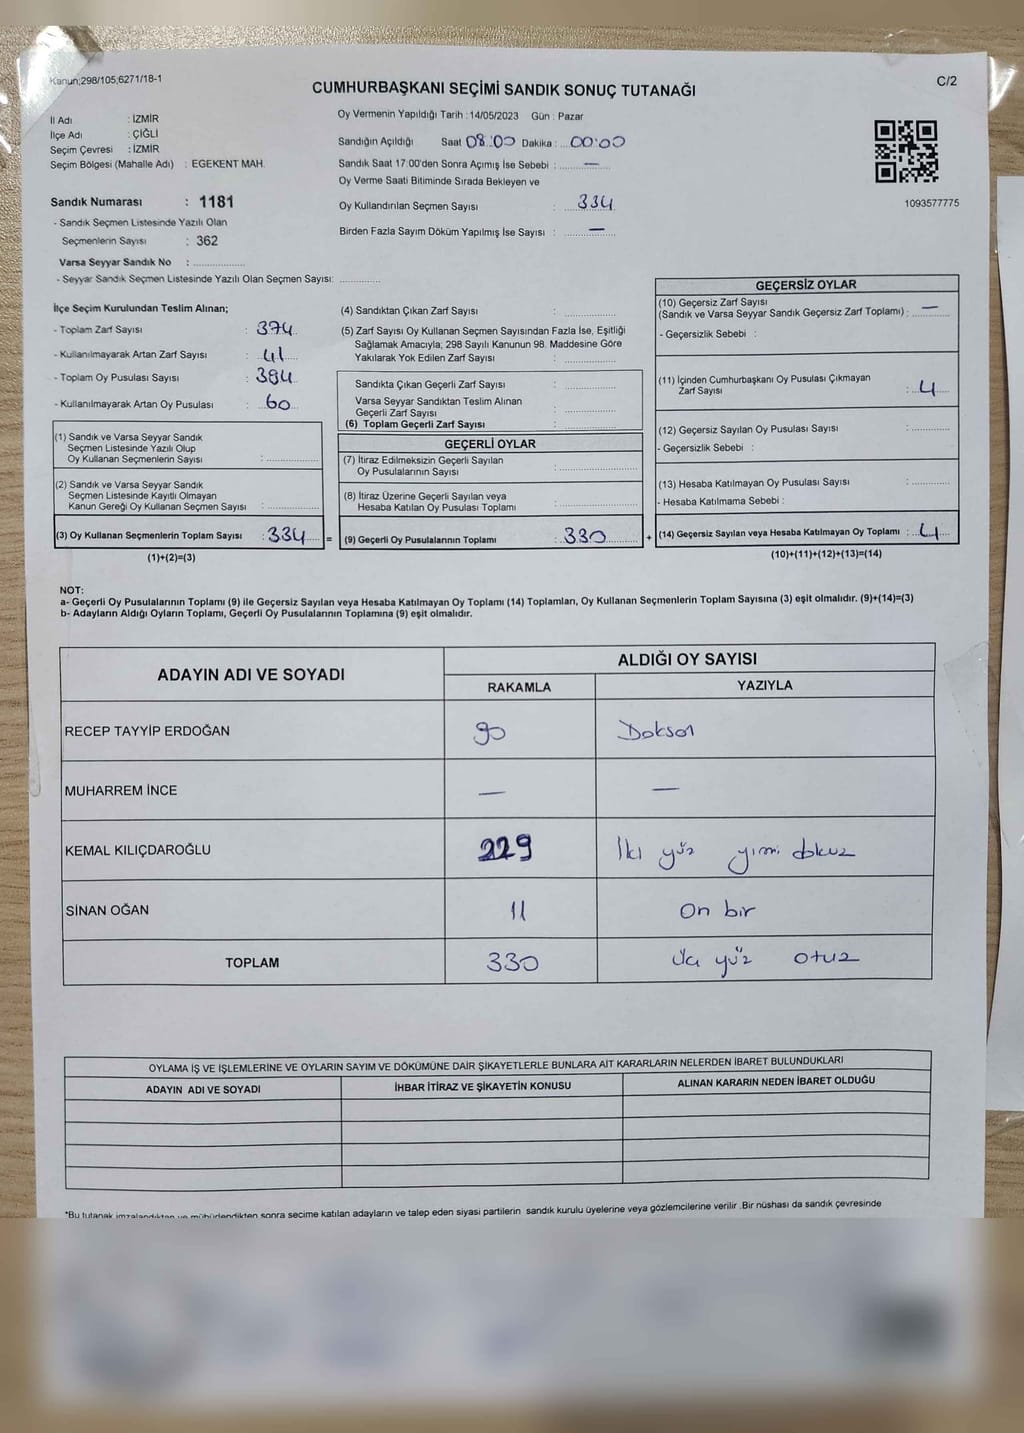 Kanun;298/105;6271/18-1
C/2
CUMHURBAŞKANI SEÇİMİ SANDIK SONUÇ TUTANAĞI
İl Adı : İZMİR
İlçe Adı : ÇİĞLİ
Seçim Çevresi : İZMİR
Seçim Bölgesi (Mahalle Adı) : EGEKENT MAH.
Sandık Numarası : 1181
- Sandık Seçmen Listesinde Yazılı Olan
Seçmenlerin Sayısı : 362
Varsa Seyyar Sandık No : ...............
- Seyyar Sandık Seçmen Listesinde Yazılı Olan Seçmen Sayısı: ............
Oy Vermenin Yapıldığı Tarih : 14/05/2023 Gün : Pazar
Sandığın Açıldığı Saat 08:00 Dakika : 00:00
Sandık Saat 17:00'den Sonra Açımış İse Sebebi : —
Oy Verme Saati Bitiminde Sırada Bekleyen ve
Oy Kullandırılan Seçmen Sayısı : 334
Birden Fazla Sayım Döküm Yapılmış İse Sayısı : —
1093577775
İlçe Seçim Kurulundan Teslim Alınan;
- Toplam Zarf Sayısı : 374
- Kullanılmayarak Artan Zarf Sayısı : 41
- Toplam Oy Pusulası Sayısı : 384
- Kullanılmayarak Artan Oy Pusulası : 60
(1) Sandık ve Varsa Seyyar Sandık
Seçmen Listesinde Yazılı Olup
Oy Kullanan Seçmenlerin Sayısı : ............
(2) Sandık ve Varsa Seyyar Sandık
Seçmen Listesinde Kayıtlı Olmayan
Kanun Gereği Oy Kullanan Seçmen Sayısı : ............
(3) Oy Kullanan Seçmenlerin Toplam Sayısı : 334 =
(1)+(2)=(3)
(4) Sandıktan Çıkan Zarf Sayısı : ............
(5) Zarf Sayısı Oy Kullanan Seçmen Sayısından Fazla İse, Eşitliği
Sağlamak Amacıyla; 298 Sayılı Kanunun 98. Maddesine Göre
Yakılarak Yok Edilen Zarf Sayısı : ............
Sandıkta Çıkan Geçerli Zarf Sayısı : ............
Varsa Seyyar Sandıktan Teslim Alınan
Geçerli Zarf Sayısı : ............
(6) Toplam Geçerli Zarf Sayısı : ............
GEÇERLİ OYLAR
(7) İtiraz Edilmeksizin Geçerli Sayılan
Oy Pusulalarının Sayısı : ............
(8) İtiraz Üzerine Geçerli Sayılan veya
Hesaba Katılan Oy Pusulası Toplamı : ............
(9) Geçerli Oy Pusulalarının Toplamı : 330 +
GEÇERSİZ OYLAR
(10) Geçersiz Zarf Sayısı
(Sandık ve Varsa Seyyar Sandık Geçersiz Zarf Toplamı) : —
- Geçersizlik Sebebi :
(11) İçinden Cumhurbaşkanı Oy Pusulası Çıkmayan
Zarf Sayısı : 4
(12) Geçersiz Sayılan Oy Pusulası Sayısı : ............
- Geçersizlik Sebebi :
(13) Hesaba Katılmayan Oy Pusulası Sayısı : ............
- Hesaba Katılmama Sebebi :
(14) Geçersiz Sayılan veya Hesaba Katılmayan Oy Toplamı : 4
(10)+(11)+(12)+(13)=(14)
NOT:
a- Geçerli Oy Pusulalarının Toplamı (9) ile Geçersiz Sayılan veya Hesaba Katılmayan Oy Toplamı (14) Toplamları, Oy Kullanan Seçmenlerin Toplam Sayısına (3) eşit olmalıdır. (9)+(14)=(3)
b- Adayların Aldığı Oyların Toplamı, Geçerli Oy Pusulalarının Toplamına (9) eşit olmalıdır.
ADAYIN ADI VE SOYADI ALDIĞI OY SAYISI
RAKAMLA YAZIYLA
RECEP TAYYİP ERDOĞAN 90 Doksan
MUHARREM İNCE — —
KEMAL KILIÇDAROĞLU 229 İki yüz yirmi dokuz
SİNAN OĞAN 11 On bir
TOPLAM 330 üç yüz otuz
OYLAMA İŞ VE İŞLEMLERİNE VE OYLARIN SAYIM VE DÖKÜMÜNE DAİR ŞİKAYETLERLE BUNLARA AİT KARARLARIN NELERDEN İBARET BULUNDUKLARI
ADAYIN ADI VE SOYADI İHBAR İTİRAZ VE ŞİKAYETİN KONUSU ALINAN KARARIN NEDEN İBARET OLDUĞU
*Bu tutanak imzalandıktan ve mühürlendikten sonra seçime katılan adayların ve talep eden siyasi partilerin sandık kurulu üyelerine veya gözlemcilerine verilir .Bir nüshası da sandık çevresinde